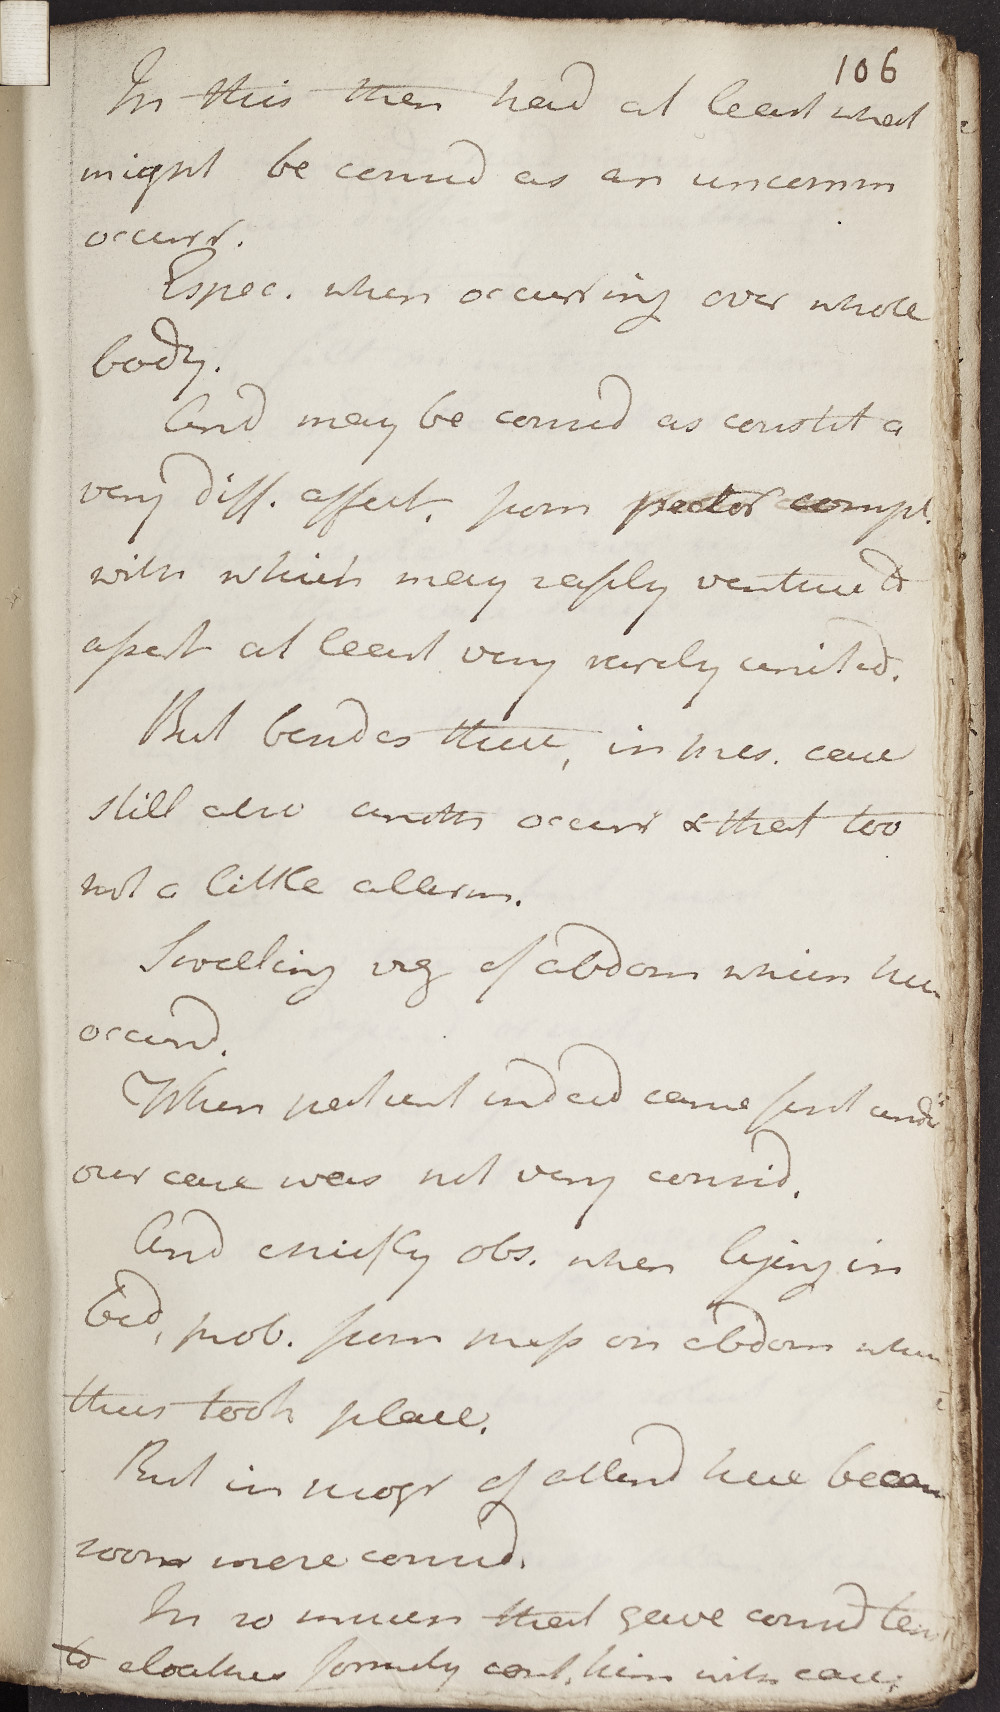 106
In this then had at least what
might be consid as an uncomm
occurr.
Espec. when occurring over whole
body.
And may be consid as constit a
very diff. affect. from pector compl.
with which may safely venture to
assert at least very rarely united.
But besides these, in pres. case
still also anothr occurr & that too
not a little allarm.
Swelling viz of abdom which here
occurrd.
When patient indeed came first under
our care was not very consid.
And chiefly obs. when lying in
bed, prob. from press on abdom when
thus took place.
But in progr of attend here becam
soon more consid.
In so much that gave consid tens
to cloathes formerly cont. him with ease;